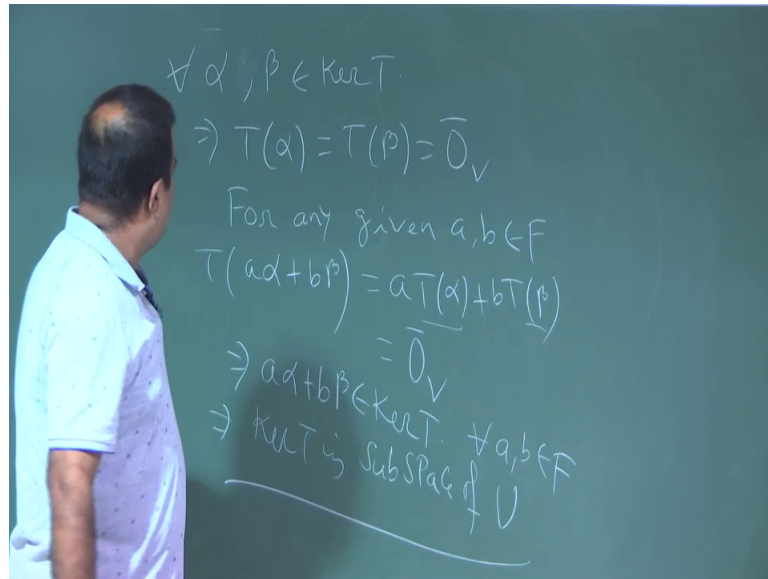 ∀ ᾱ, β ∈ Ker T.
⇒ T(α) = T(β) = 0̄_V
For any given a, b ∈ F
T(aα+bβ) = aT(α)+bT(β)
= 0̄_V
⇒ aα+bβ ∈ Ker T. ∀ a,b ∈ F
⇒ Ker T is SubSPace of U